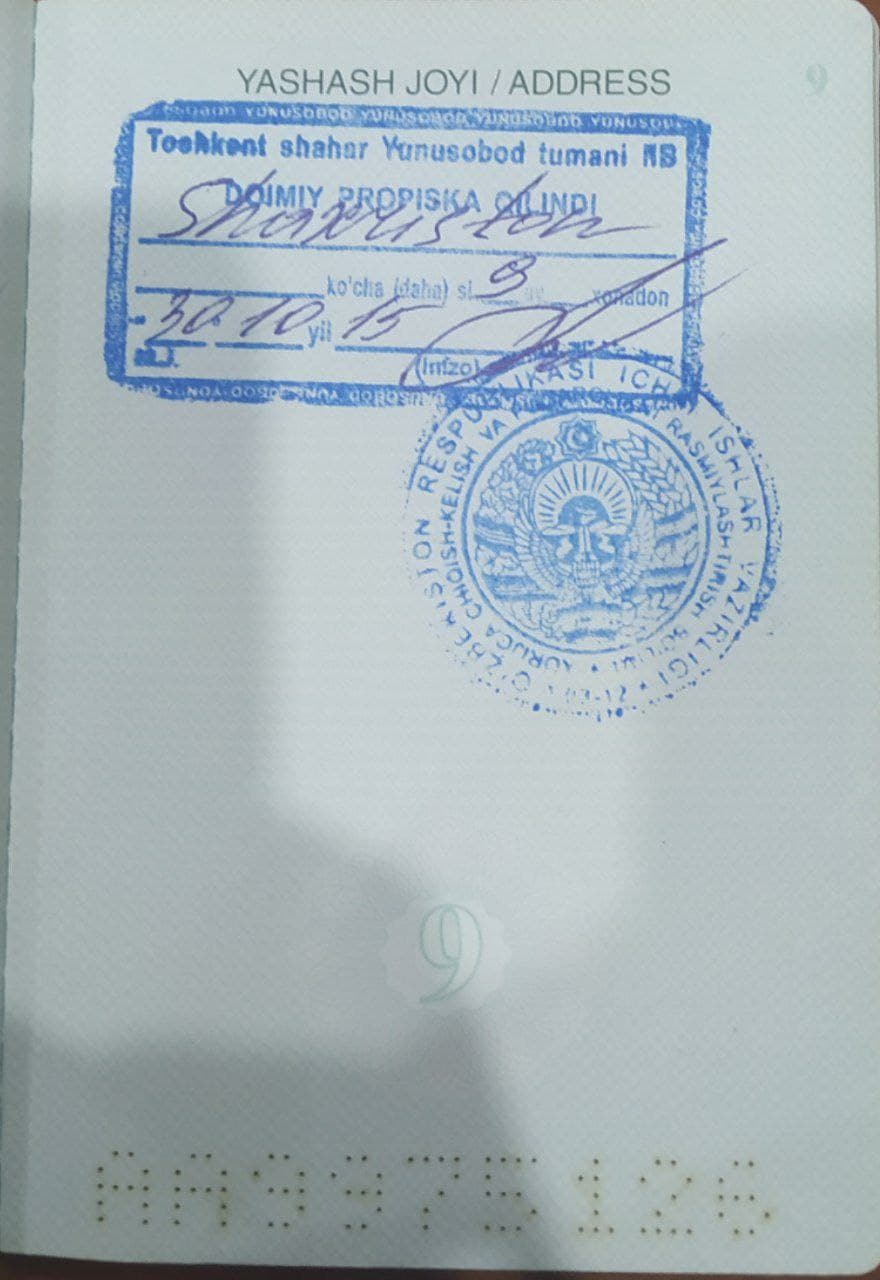 YASHASH JOYI / ADDRESS
9
YUNUSOBOD YUNUSOBOD YUNUSOBOD
Toshkent shahar Yunusobod tumani IIB
DOIMIY PROPISKA QILINDI
Shaxriston
ko'cha (daha) si 9 uy xonadon
30 10 yil 15
(imzo)
O'ZBEKISTON RESPUBLIKASI ICHKI ISHLAR VAZIRLIGI
XORIJGA CHIQISH-KELISH VA FUQAROLIKNI RASMIYLASHTIRISH BO'LIMI
9
AA3375126